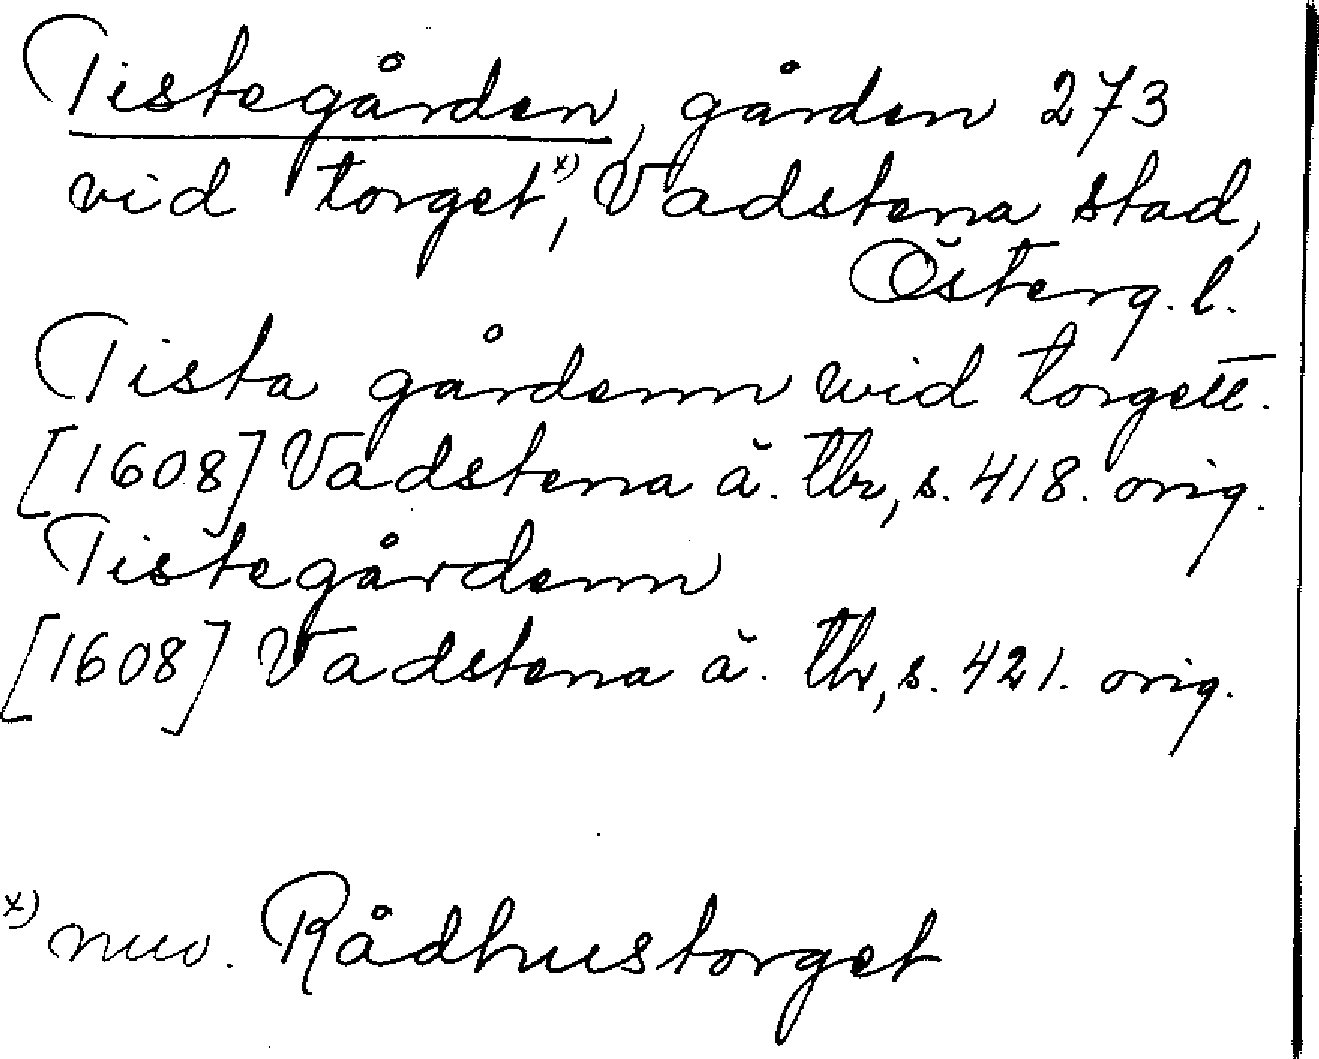 Tistegården, gården 273
vid torget x), Vadstena stad,
Österg. l.
Tista gårdenn wid torgett.
[1608] Vadstena ä. tb, s. 418. orig.
Tistegårdenn
[1608] Vadstena ä. tb, s. 421. orig.
x) nuv. Rådhustorget